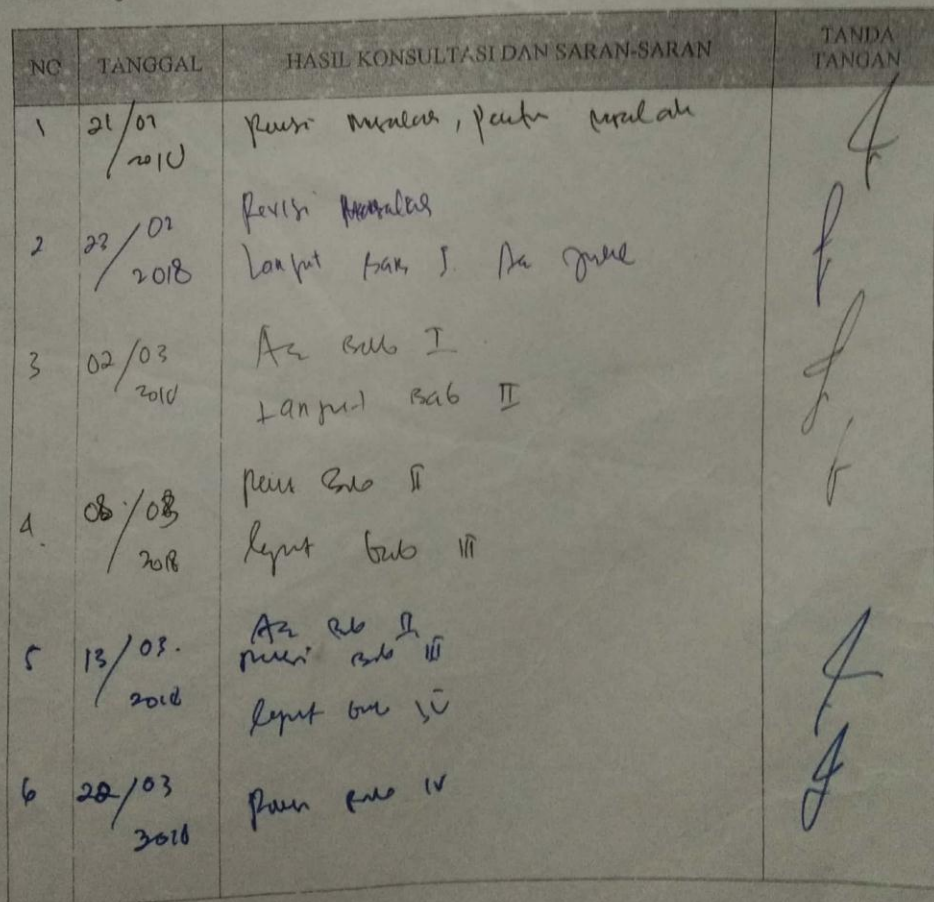 NO TANGGAL HASIL KONSULTASI DAN SARAN-SARAN TANDA TANGAN
1 21/02 2018 Revisi masalah,
2 22/02 2018 Revisi masalah
Lanjut Bab I. Acc
3 02/03 2018 Acc Bab I
Lanjut Bab II
4. 08/03 2018 Revisi Bab II
Lanjut Bab III
5 13/03. 2018 Acc Bab II
Revisi Bab III
Lanjut Bab IV
6 22/03 2018 Revisi Bab IV